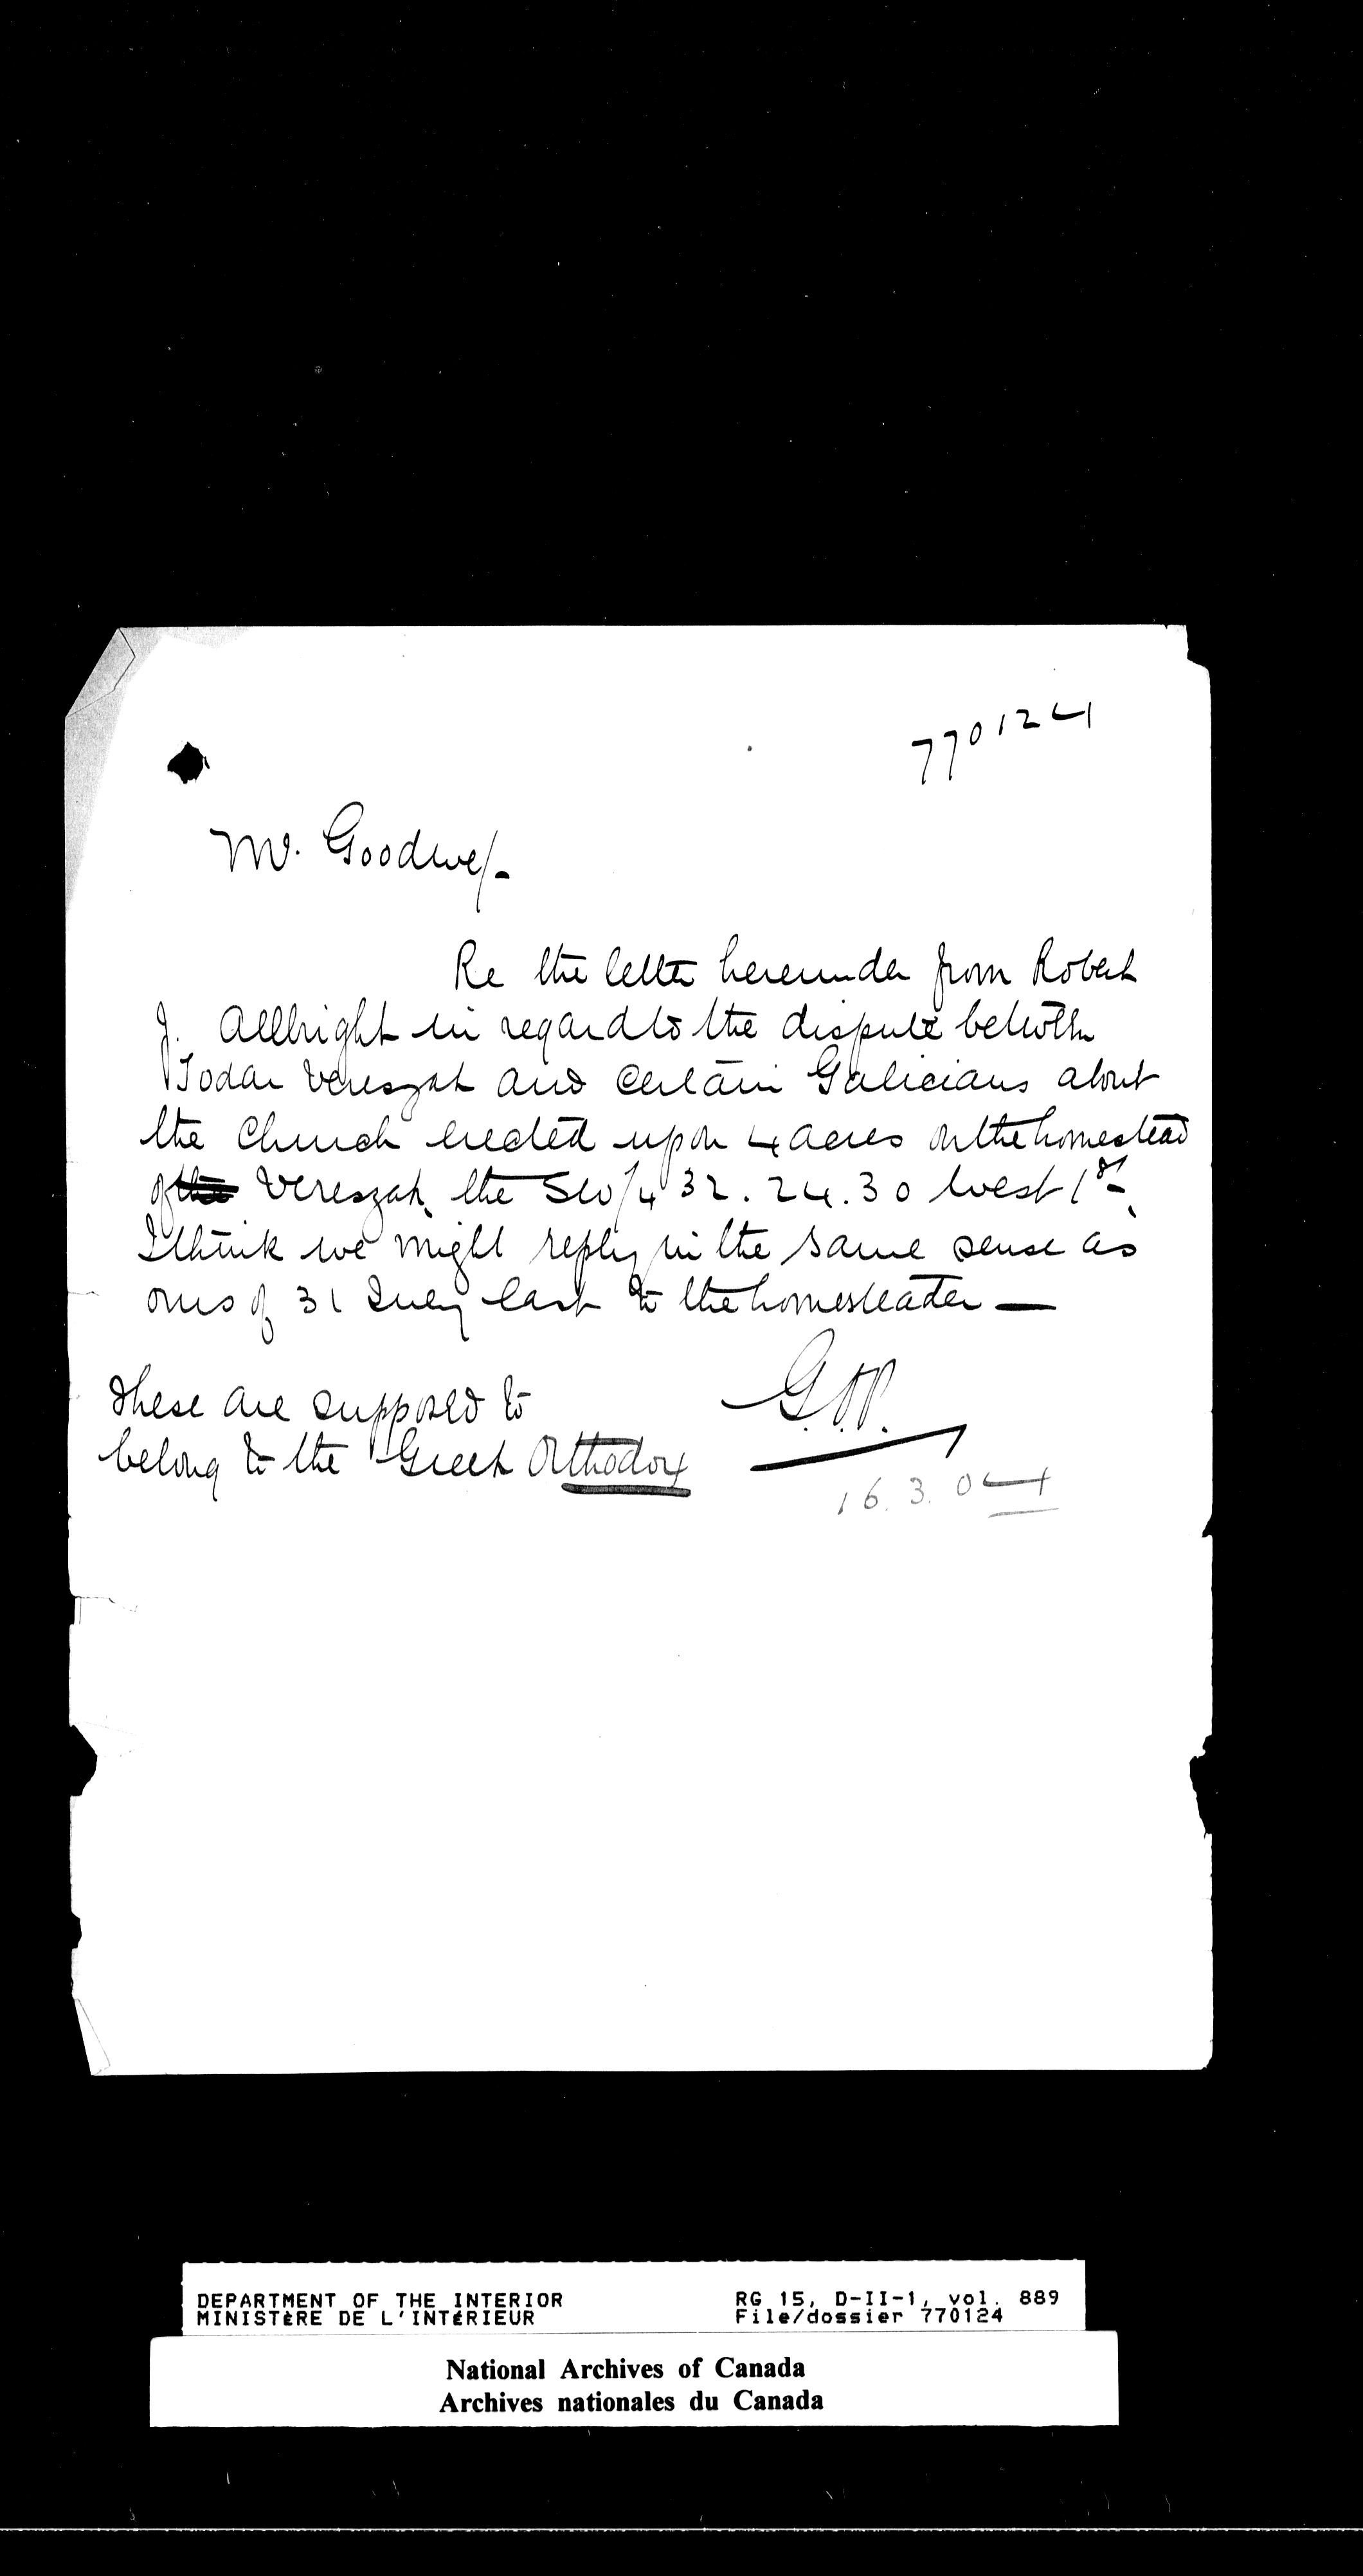 770124
Mr. Goodwe/-
Re the letter hereunder from Robert
J. Allbright in regard to the dispute between
Todar Vereszak and certain Galicians about
the Church erected upon 4 acres on the homestead
of the Vereszak, the SW/4 32.24.30 West 1st.
I think we might reply in the same sense as
ours of 31 July last to the homesteader —
these are supposed to
belong to the Greek Orthodox
16.3.04
DEPARTMENT OF THE INTERIOR RG 15, D-II-1, vol. 889
MINISTÈRE DE L'INTÉRIEUR File/dossier 770124
National Archives of Canada
Archives nationales du Canada